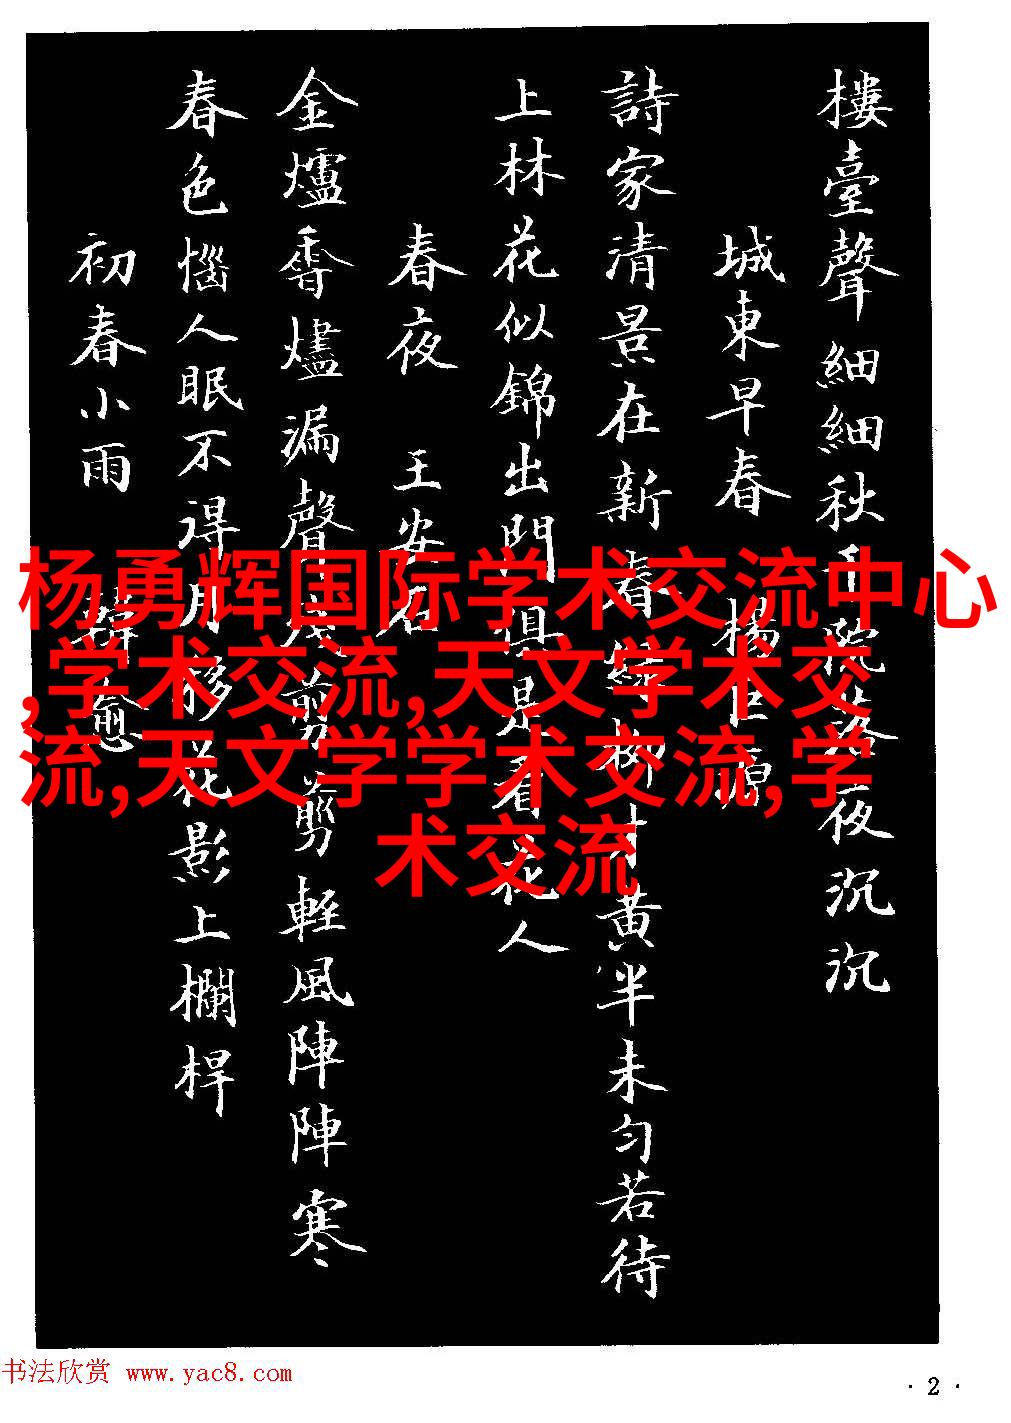 樓臺聲細細秋千院落夜沉沉
城東早春 楊巨源
詩家清景在新春綠柳才黃半未匀若待
上林花似錦出門俱是看花人
春夜 王安石
金爐香燼漏聲殘剪剪輕風陣陣寒
春色惱人眠不得月移花影上欄桿
初春小雨 韓愈
杨勇辉国际学术交流中心
,学术交流,天文学术交
流,天文学学术交流,学
术交流
书法欣赏 www.yac8.com
· 2 ·